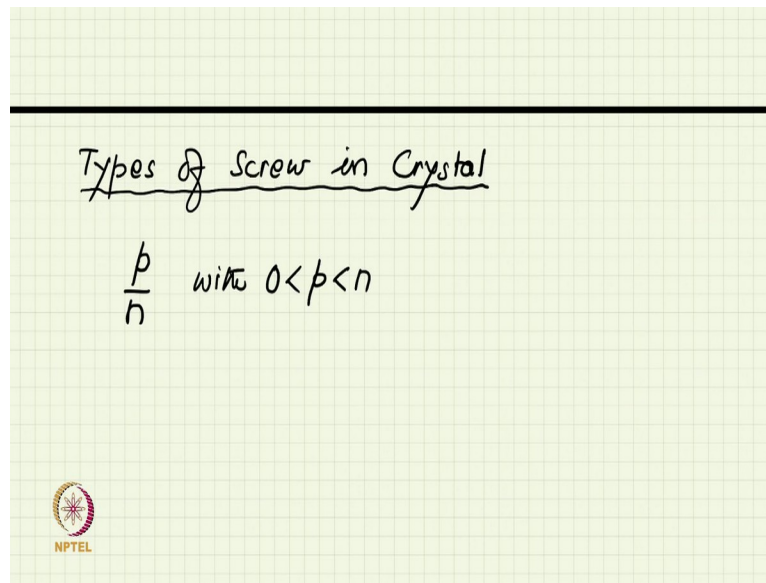 Types of Screw in Crystal
p/n with 0<p<n
NPTEL